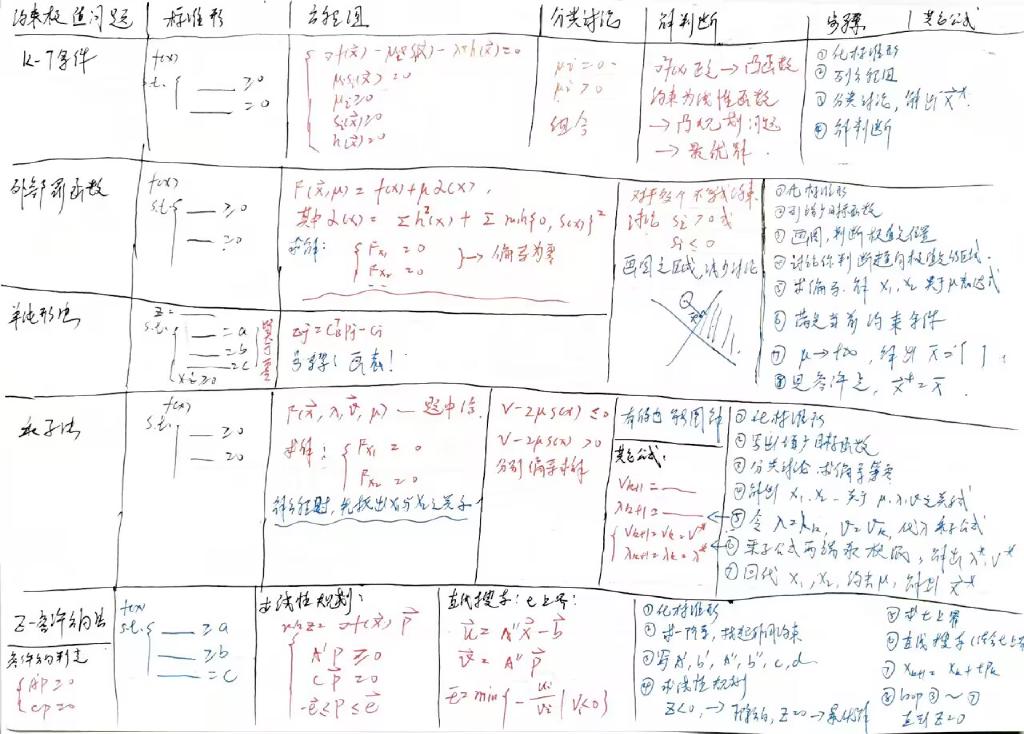 约束极值问题 标准形 方程组 分类讨论 解判断 步骤 其它公式
K-T条件
f(x)
s.t. { ___ ≥0
___ =0
μi s_i(x) =0
μi ≥0
s_i(x) ≥0
h(x)=0
μi = 0
μi > 0
组合
∇²f(x) 正定 → 凸函数
约束为线性函数
→ 凸规划问题
→ 最优解.
① 化标准形
② 列方程组
③ 分类讨论, 解出 x*
④ 解判断
外部罚函数
f(x)
s.t. { ___ ≥0
___ =0
F(x,μ) = f(x)+μα(x),
其中 α(x) = Σh²(x) + Σ min{0, s(x)}²
求解: { Fx₁ = 0
Fx₂ = 0 } → 偏导为零
对于每个不等式约束
讨论 si > 0 或
si < 0
画图定区域, 减少讨论
① 化标准形
② 列增广目标函数
③ 画图, 判断极值点位置
⑤ 求偏导, 解 x₁, x₂ 关于μ表达式
⑥ 满足当前约束条件
⑦ μ→+∞, 解出 x=[ ],
⑧ 是条件点, x*=x
单纯形法
z= ___
s.t. { ___ = a
___ = b
___ = c
xi ≥0
zj = C_B^T Pj - Cj
步骤: 画表!
乘子法
f(x)
s.t. ___ ≥0
___ =0
F(x, λ, v, μ) — 题中给.
求解: { Fx₁ = 0
Fx₂ = 0
解方程时, 先找出x₁与x₂之关系
v-2μs(x) ≤ 0
v-2μs(x) > 0
分别偏导求解
其它公式:
v_{k+1} = ___
λ_{k+1} = ___
{ v_{k+1} = v_k = v*
λ_{k+1} = λ_k = λ*
① 化标准形
② 写出增广目标函数
③ 分类讨论, 求偏导等零
④ 解出 x₁, x₂ — 关于 μ, λ, v 之关系式
⑤ 令 λ=λk, v=vk, 代入乘子公式
⑥ 乘子公式两端取极限, 解出 λ*, v*
⑦ 回代 x₁, x₂, 约去μ, 解出 x*
Z-容许方向法
f(x)
s.t. { ___ ≥a
___ ≥b
___ =c
容许方向判定
{ A'p ≥0
cp =0
求线性规划:
min z = ∇f(x) p
{ A'p ≥0
cp =0
-e≤p≤e
直线搜索: t上界:
u = A''x - b
v = A''p
t = min{ -ui/vi | vi<0 }
① 化标准形
② 求一阶导, 找起作用约束
③ 写 A', b', A'', b'', c, d
④ 求线性规划
z<0, → 下降方向, z=0 → 最优解
⑤ 求t上界
⑥ 直线搜索
⑦ x_{k+1} = x_k + tp_k
⑧ loop ② ~ ⑦
直到 z=0